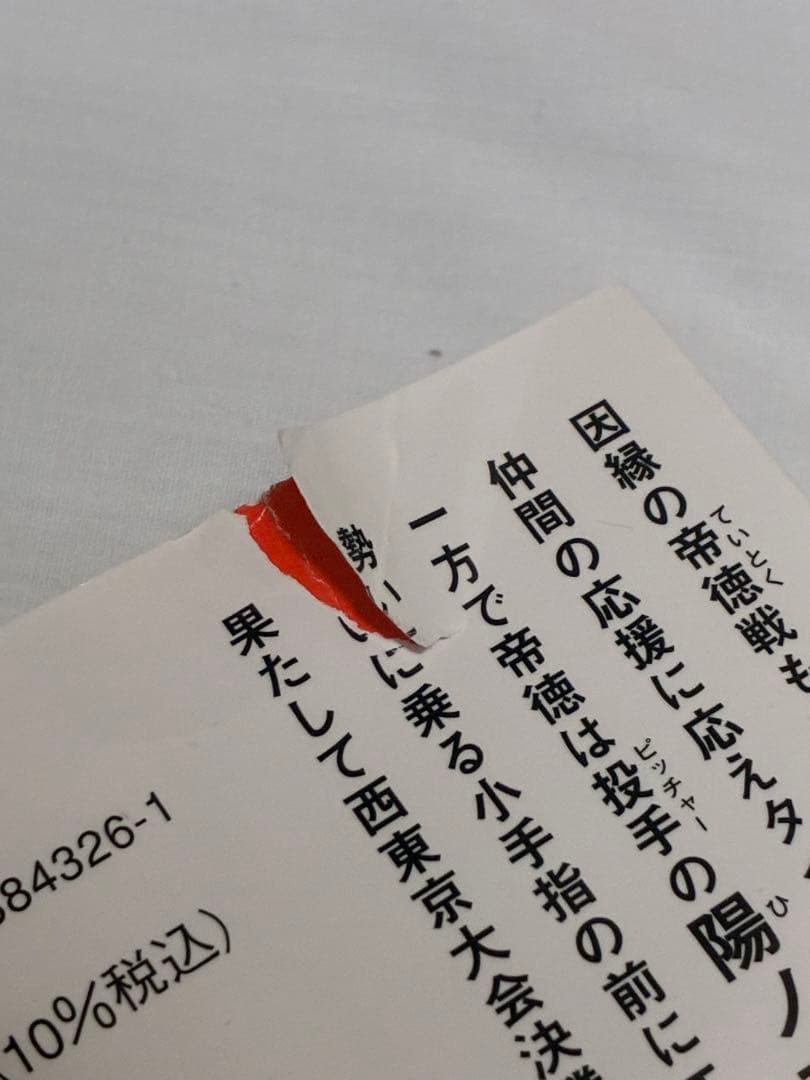 因縁の帝徳戦も
ていとく
仲間の応援に応えタ
一方で帝徳は投手の陽ノ
ピッチャー
ひ
勢いに乗る小手指の前に
果たして西東京大会決
84326-1
(10%税込)